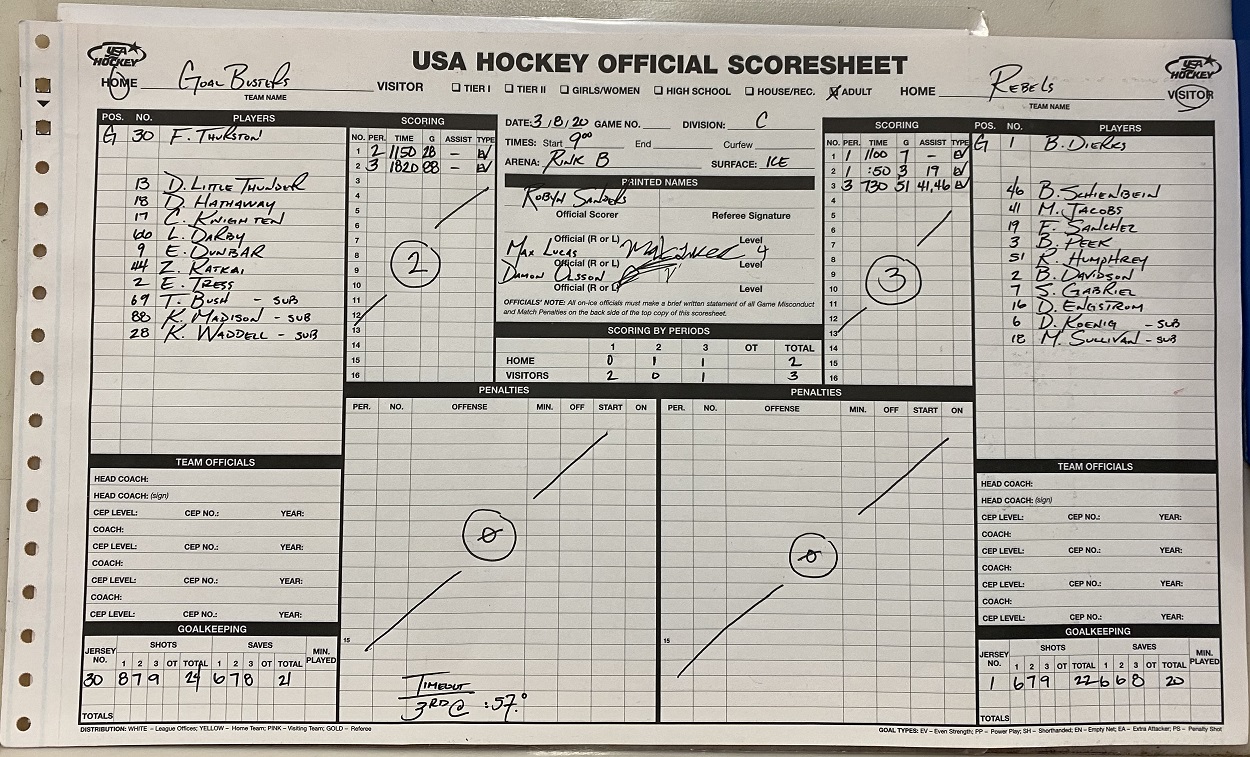 USA HOCKEY OFFICIAL SCORESHEET
USA HOCKEY
USA HOCKEY
HOME Goal Busters VISITOR
TEAM NAME
☐ TIER I ☐ TIER II ☐ GIRLS/WOMEN ☐ HIGH SCHOOL ☐ HOUSE/REC. ☒ ADULT
HOME Rebels VISITOR
TEAM NAME
POS. NO. PLAYERS
G 30 F. Thurston
13 D. Little Thunder
18 D. Hathaway
17 C. Knighten
66 L. Darby
9 E. Dunbar
44 Z. Ratkai
2 E. Tress
69 T. Bush - sub
88 K. Madison - sub
28 K. Waddell - sub
SCORING
NO. PER. TIME G ASSIST TYPE
1 2 1150 28 - EV
2 3 1820 88 - EV
3
4
5
6
7
8
9
10
11
12
13
14
15
16
2
DATE: 3/8/20 GAME NO. DIVISION: C
TIMES: Start 9:00 End Curfew
ARENA: Rink B SURFACE: ICE
PRINTED NAMES
Robyn Sanders
Official Scorer Referee Signature
Official (R or L) Level
Max Lucas 4
Official (R or L) Level
Damon Olsson
Official (R or L) Level
OFFICIALS' NOTE: All on-ice officials must make a brief written statement of all Game Misconduct
and Match Penalties on the back side of the top copy of this scoresheet.
SCORING BY PERIODS
1 2 3 OT TOTAL
HOME 0 1 1 2
VISITORS 2 0 1 3
SCORING
NO. PER. TIME G ASSIST TYPE
1 1 1100 7 - EV
2 1 :50 3 19 EV
3 3 730 51 41,46 EV
4
5
6
7
8
9
10
11
12
13
14
15
16
3
POS. NO. PLAYERS
G 1 B. Dierks
46 B. Schienbein
41 M. Jacobs
19 F. Sanchez
3 B. Peek
51 K. Humphrey
2 B. Davidson
7 S. Gabriel
16 D. Engstrom
6 D. Koenig - sub
18 M. Sullivan - sub
TEAM OFFICIALS
HEAD COACH:
HEAD COACH: (sign)
CEP LEVEL: CEP NO.: YEAR:
COACH:
CEP LEVEL: CEP NO.: YEAR:
COACH:
CEP LEVEL: CEP NO.: YEAR:
COACH:
CEP LEVEL: CEP NO.: YEAR:
GOALKEEPING
JERSEY NO. SHOTS SAVES MIN. PLAYED
1 2 3 OT TOTAL 1 2 3 OT TOTAL
30 8 7 9 24 6 7 8 21
TOTALS
PENALTIES
PER. NO. OFFENSE MIN. OFF START ON
0
15
Timeout
3RD @ :57.0
PENALTIES
PER. NO. OFFENSE MIN. OFF START ON
0
15
TEAM OFFICIALS
HEAD COACH:
HEAD COACH: (sign)
CEP LEVEL: CEP NO.: YEAR:
COACH:
CEP LEVEL: CEP NO.: YEAR:
COACH:
CEP LEVEL: CEP NO.: YEAR:
COACH:
CEP LEVEL: CEP NO.: YEAR:
GOALKEEPING
JERSEY NO. SHOTS SAVES MIN. PLAYED
1 2 3 OT TOTAL 1 2 3 OT TOTAL
1 6 7 9 22 6 6 8 20
TOTALS
DISTRIBUTION: WHITE – League Offices; YELLOW – Home Team; PINK – Visiting Team; GOLD – Referee
GOAL TYPES: EV – Even Strength; PP – Power Play; SH – Shorthanded; EN – Empty Net; EA – Extra Attacker; PS – Penalty Shot